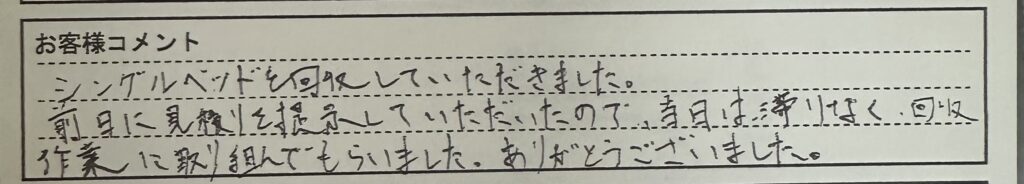 お客様コメント
シングルベッドを回収していただきました。
前日に見積りを提示していただいたので、当日は滞りなく、回収
作業に取り組んでもらいました。ありがとうございました。